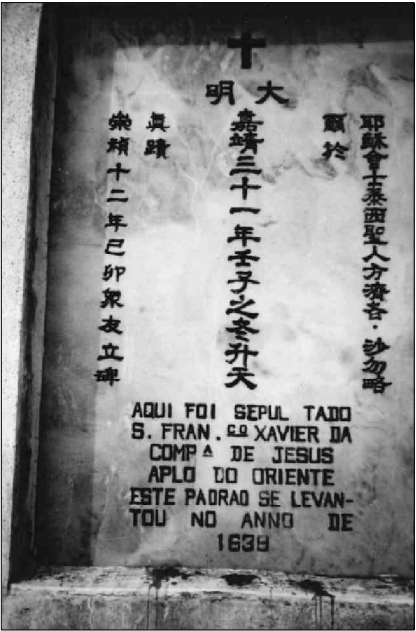 大明
耶穌會士泰西聖人方濟各·沙勿略
爾於
嘉靖三十一年壬子之冬升天
眞蹟
崇禎十二年己卯眾友立碑
AQUI FOI SEPUL TADO
S. FRAN.CO XAVIER DA
COMPA DE JESUS
APLO DO ORIENTE
ESTE PADRAO SE LEVAN-
TOU NO ANNO DE
1639